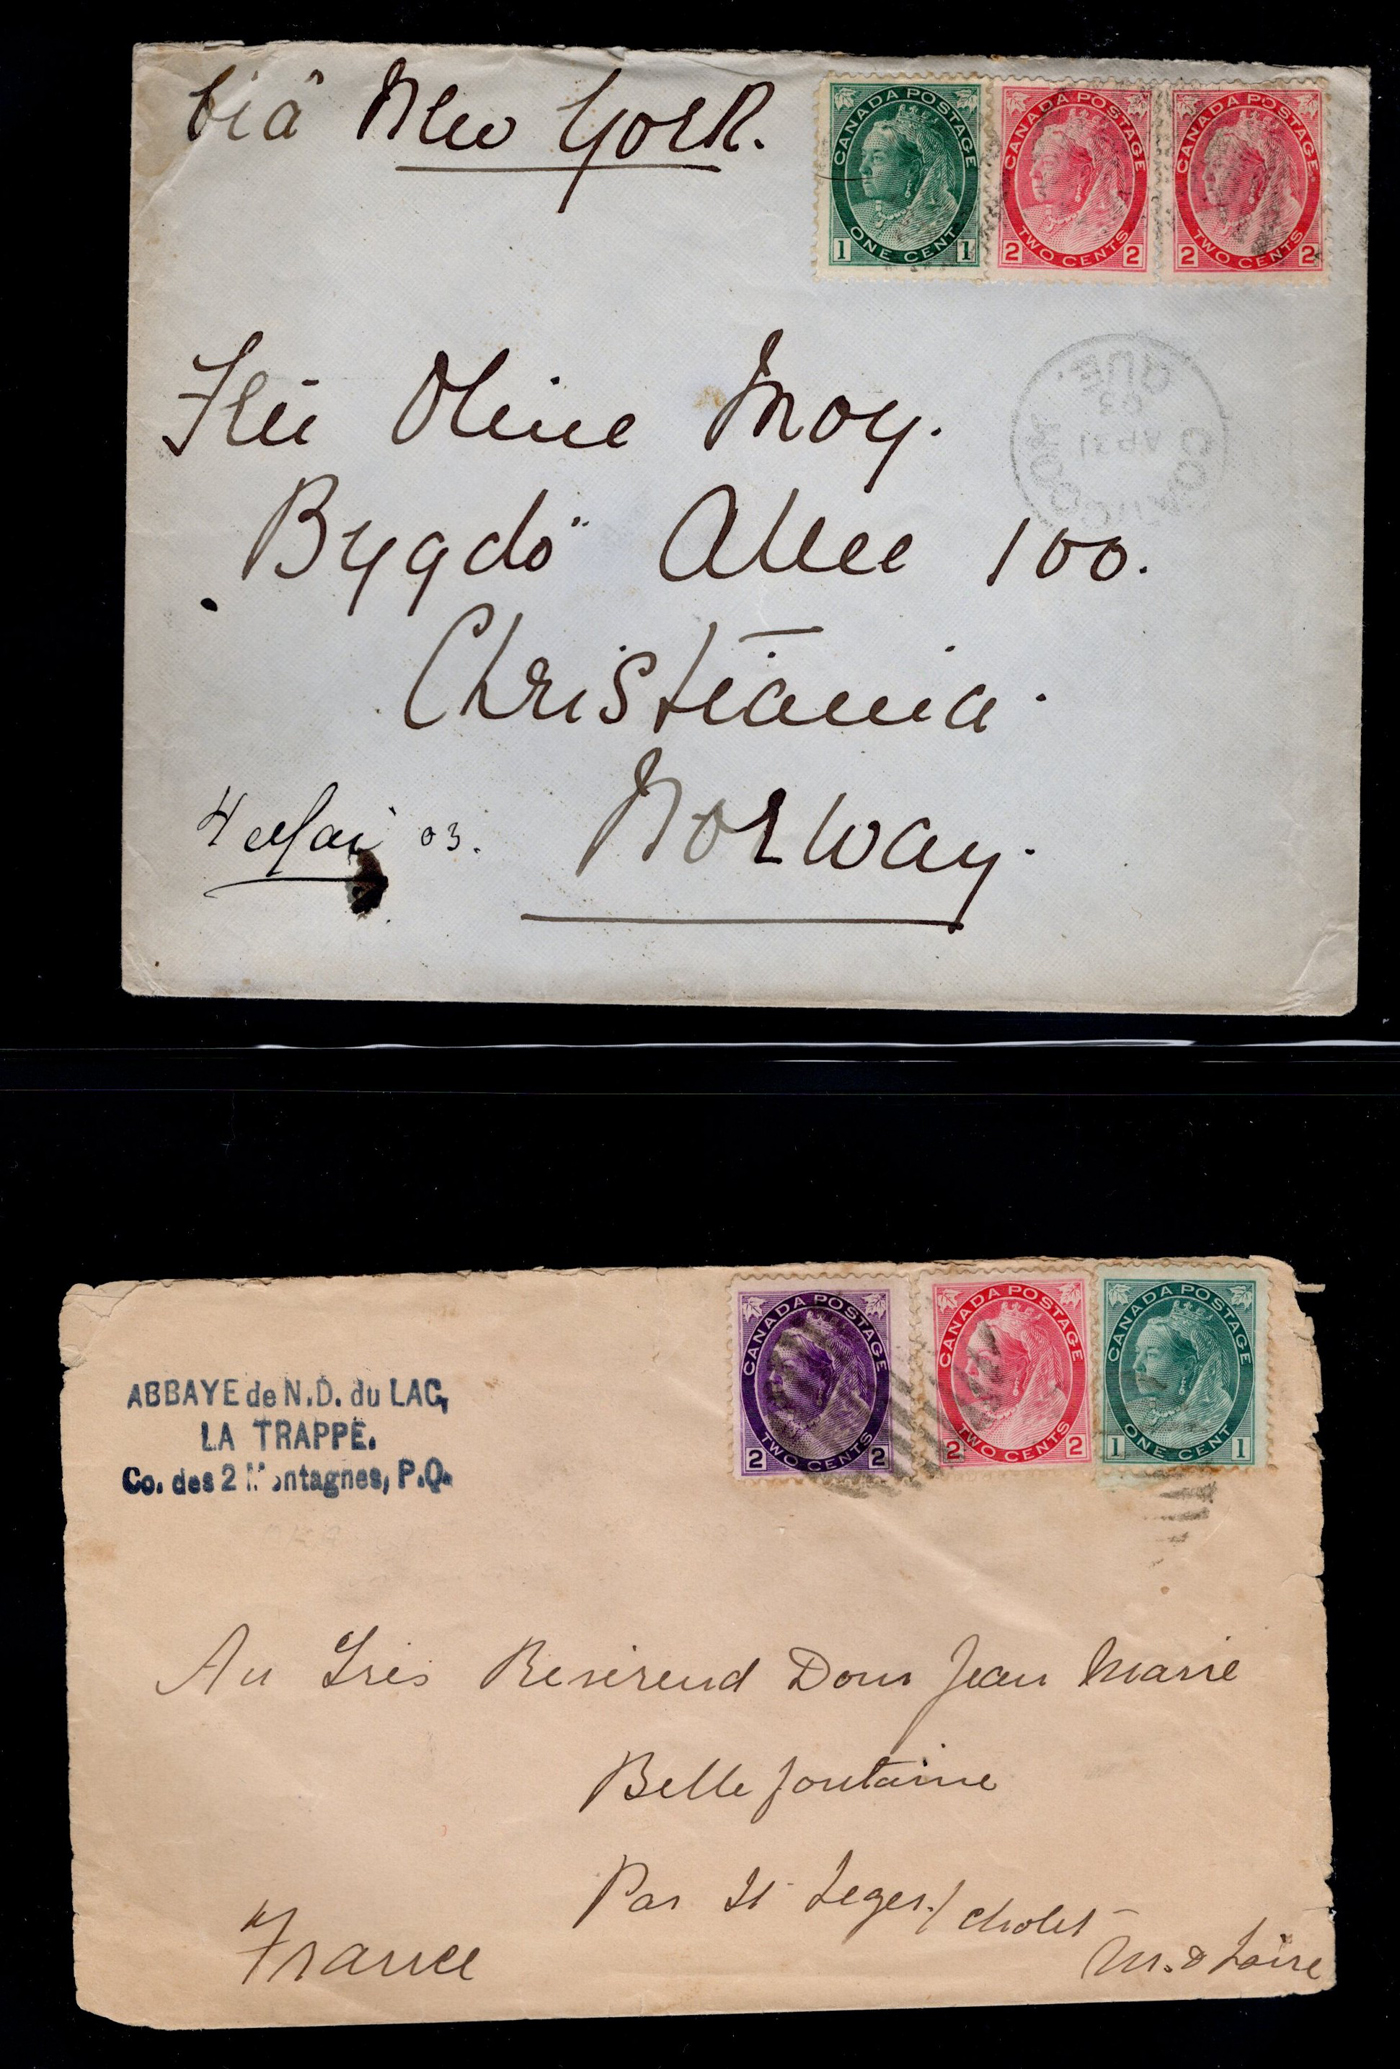 viâ New York.
CANADA POSTAGE
1 ONE CENT 1
CANADA POSTAGE
2 TWO CENTS 2
CANADA POSTAGE
2 TWO CENTS 2
QUE.
03
AP 21
Oline
Bygdö Allee 100.
Christiania.
4 Mai 03.
Norway.
CANADA POSTAGE
2 TWO CENTS 2
CANADA POSTAGE
2 TWO CENTS 2
CANADA POSTAGE
1 ONE CENT 1
ABBAYE de N.D. du LAC,
LA TRAPPE.
Co. des 2 Montagnes, P.Q.
Au Très Révérend Dom Jean Marie
Bellefontaine
Par St Léger / Cholet
M. & Loire
France